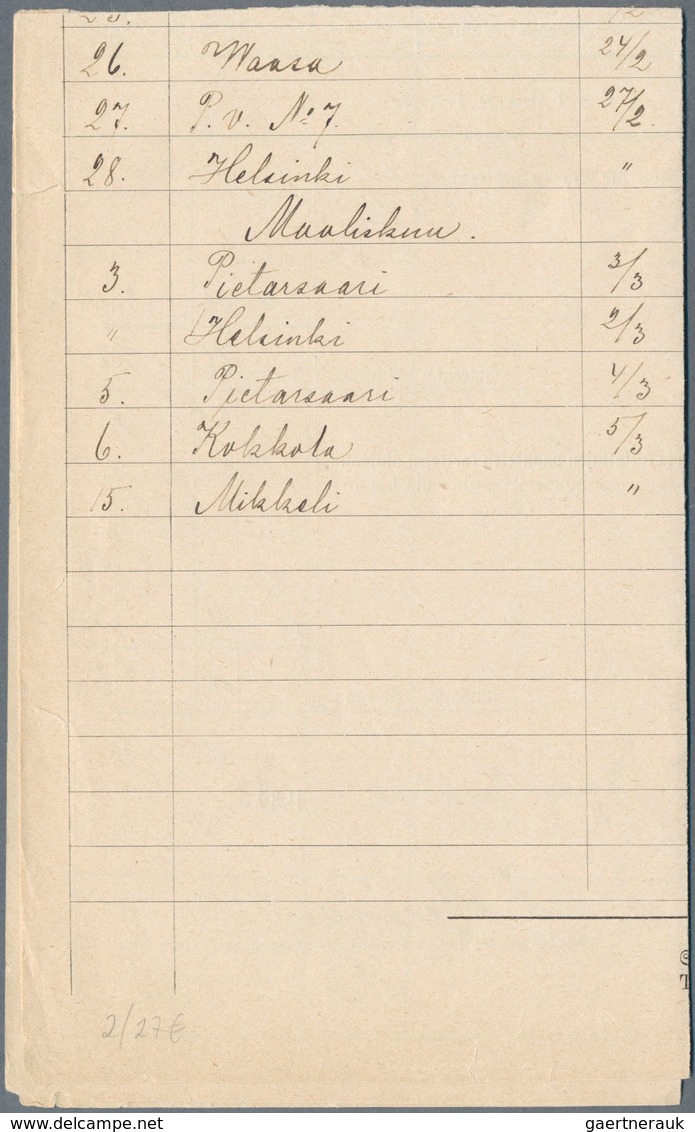 26. Waasa 24/2
27. P. v. No 7. 27/2.
28. Helsinki "
Maaliskuu.
3. Pietarsaari 3/3
" Helsinki 2/3
5. Pietarsaari 4/3
6. Kokkola 5/3
15. Mikkeli "
2/27€
gaertnerauk